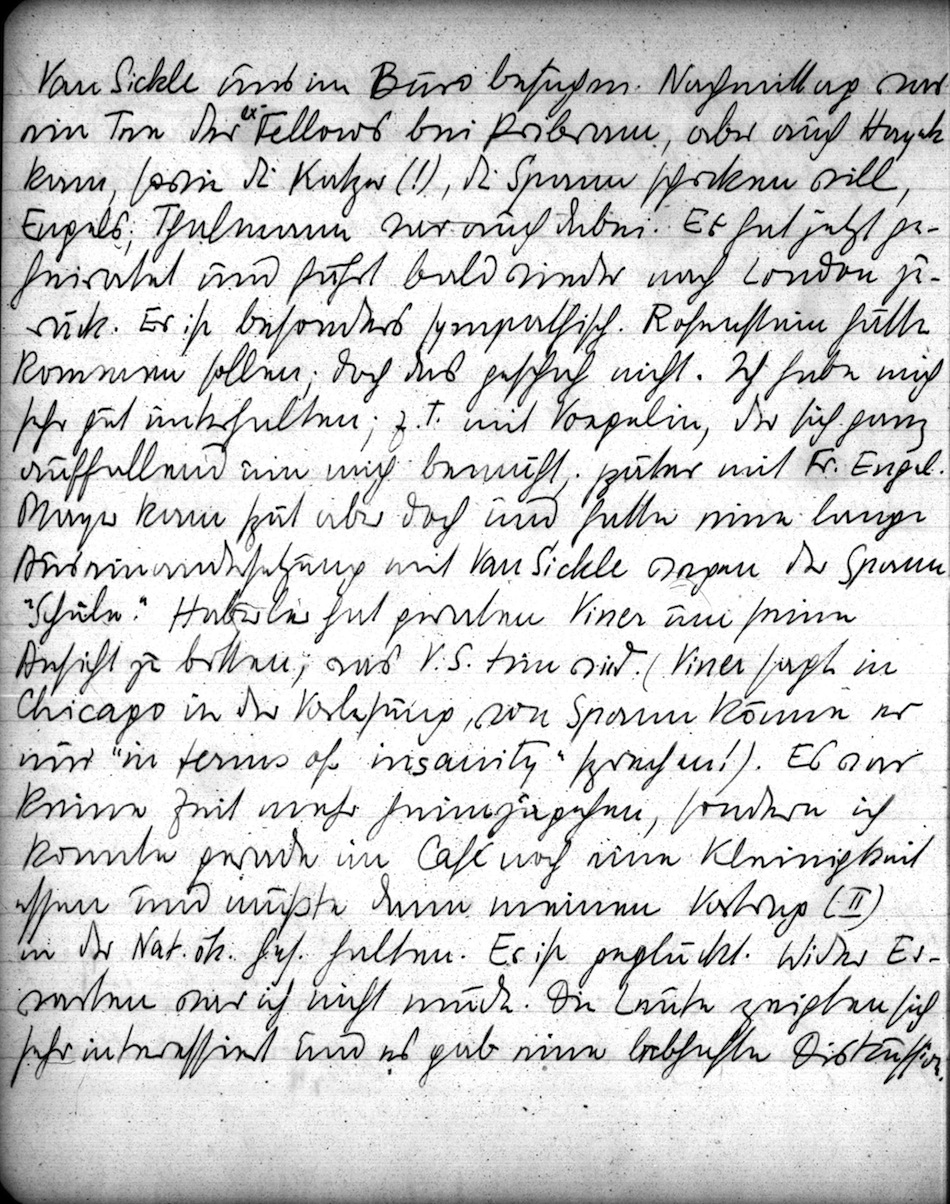 Van Sickle uns im Büro besuchen. Nachmittag war
ein Tee der ex Fellows bei Pribram, aber auch Hayek
kam, sowie die Katzer (!), die Spann schicken will,
Engels, Thalmann war auch dabei. Er hat jetzt ge-
heiratet und fährt bald wieder nach London zu-
rück. Er ist besonders sympathisch. Rosenstein hätte
kommen sollen; doch das geschah nicht. Ich habe mich
sehr gut unterhalten; z.T. mit Voegelin, der sich ganz
auffallend um mich bemüht, später mit Fr. Engel.
Mayer kam spät aber doch und hatte eine lange
Auseinandersetzung mit Van Sickle wegen der Spann
"Schule." Haberler hat geraten Viner um seine
Ansicht zu bitten; was V.S. tun wird. (Viner sagt in
Chicago in der Vorlesung, von Spann könne er
nur "in terms of insanity" sprechen!). Es war
keine Zeit mehr heimzugehen, sondern ich
konnte gerade im Café noch eine Kleinigkeit
essen und mußte dann meinen Vortrag (II)
in der Nat. ök. Ges. halten. Er ist geglückt. Wider Er-
warten war ich nicht müde. Die Leute zeigten sich
sehr interessiert und es gab eine lebhafte Diskussion.